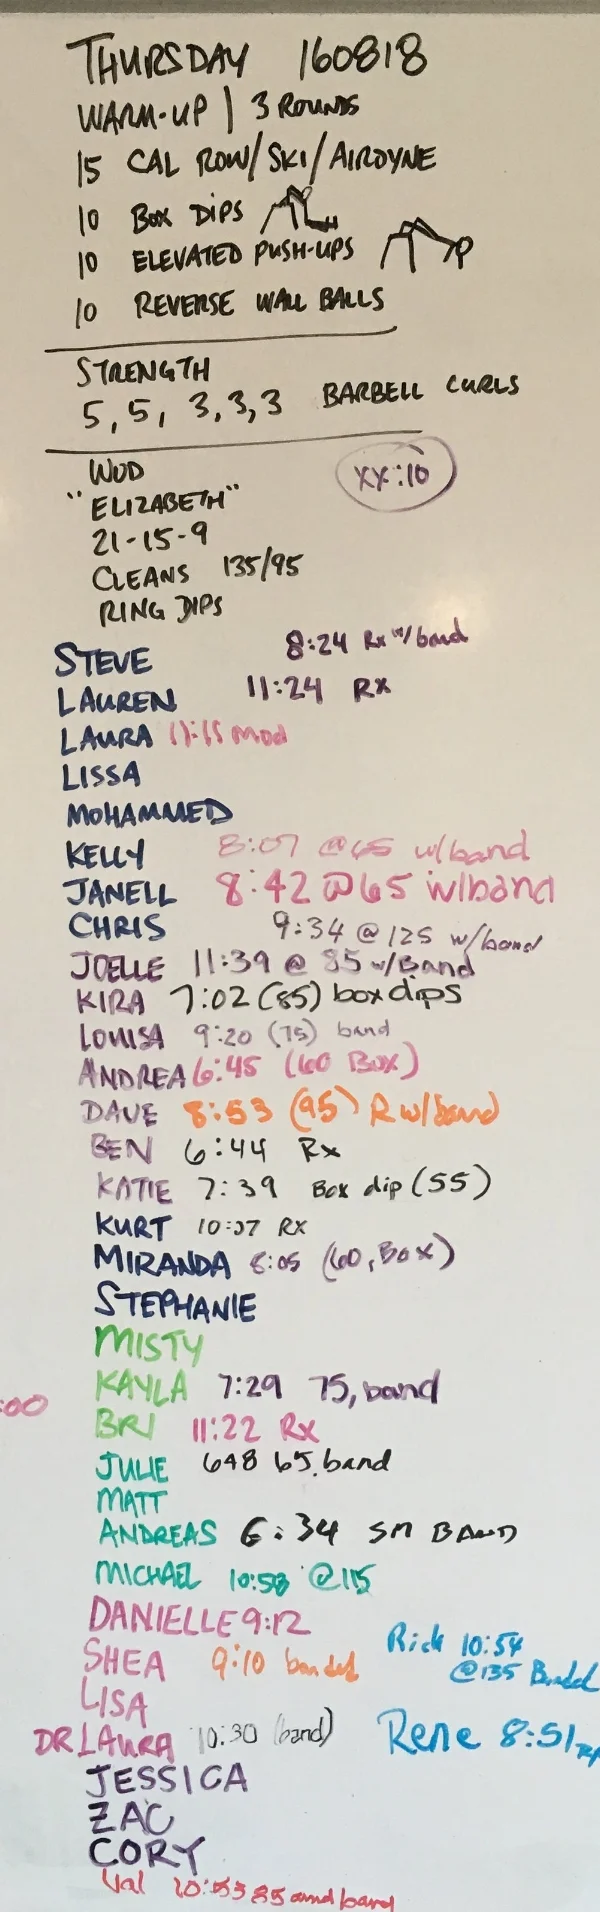 THURSDAY 160818
WARM-UP | 3 ROUNDS
15 CAL ROW/SKI/AIRDYNE
10 BOX DIPS
10 ELEVATED PUSH-UPS
10 REVERSE WALL BALLS
STRENGTH
5, 5, 3, 3, 3 BARBELL CURLS
WOD XX:10
"ELIZABETH"
21-15-9
CLEANS 135/95
RING DIPS
STEVE 8:24 Rx w/band
LAUREN 11:24 RX
LAURA 11:15 mod
LISSA
MOHAMMED
KELLY 8:07 @65 w/band
JANELL 8:42 @65 w/band
CHRIS 9:34 @ 125 w/band
JOELLE 11:39 @ 85 w/Band
KIRA 7:02 (85) box dips
LOUISA 9:20 (75) band
ANDREA 6:45 (60 BOX)
DAVE 8:53 (95) R w/band
BEN 6:44 Rx
KATIE 7:39 Box dip (55)
KURT 10:37 RX
MIRANDA 8:05 (60, BOX)
STEPHANIE
MISTY
KAYLA 7:29 75, band
:00
BRI 11:22 Rx
JULIE 648 65, band
MATT
ANDREAS 6:34 SM BAND
MICHAEL 10:58 @115
DANIELLE 9:12
SHEA 9:10 banded
Rick 10:54
@135 Banded
LISA
DR LAURA 10:30 (band)
Rene 8:51
JESSICA
ZAC
CORY
Val 10:53 85 and band